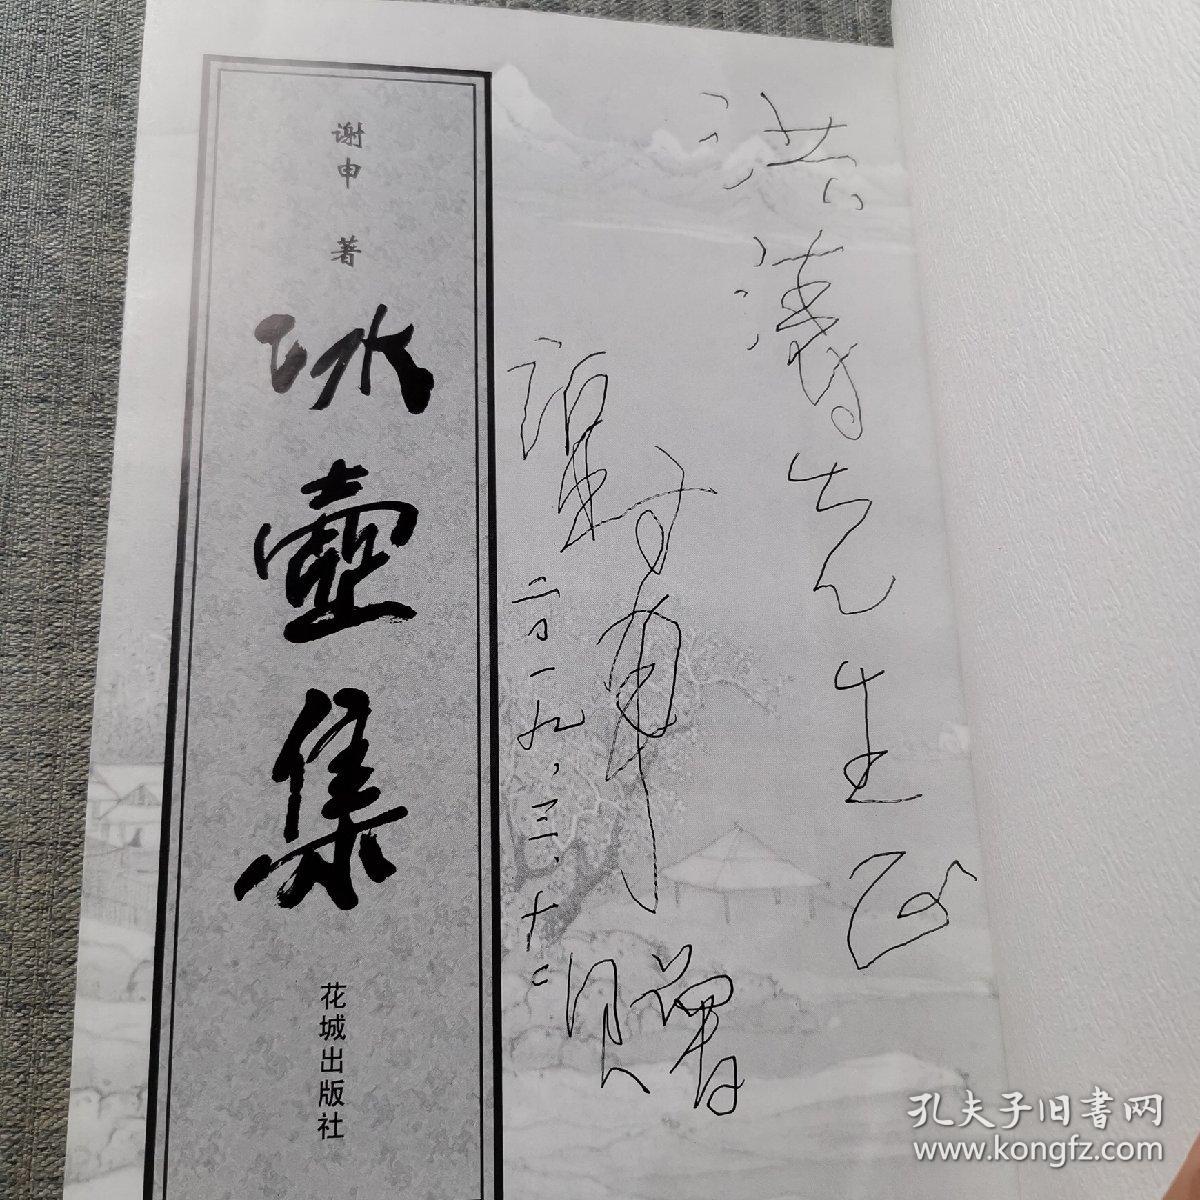 谢申 著
冰壺集
花城出版社
洪涛先生正
谢申
赠
二〇一九、三、十二
孔夫子旧書网
www.kongfz.com